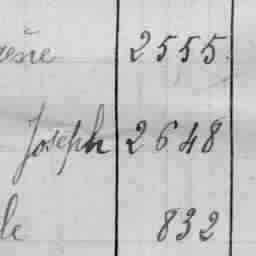 2555
Joseph 2648
le 832